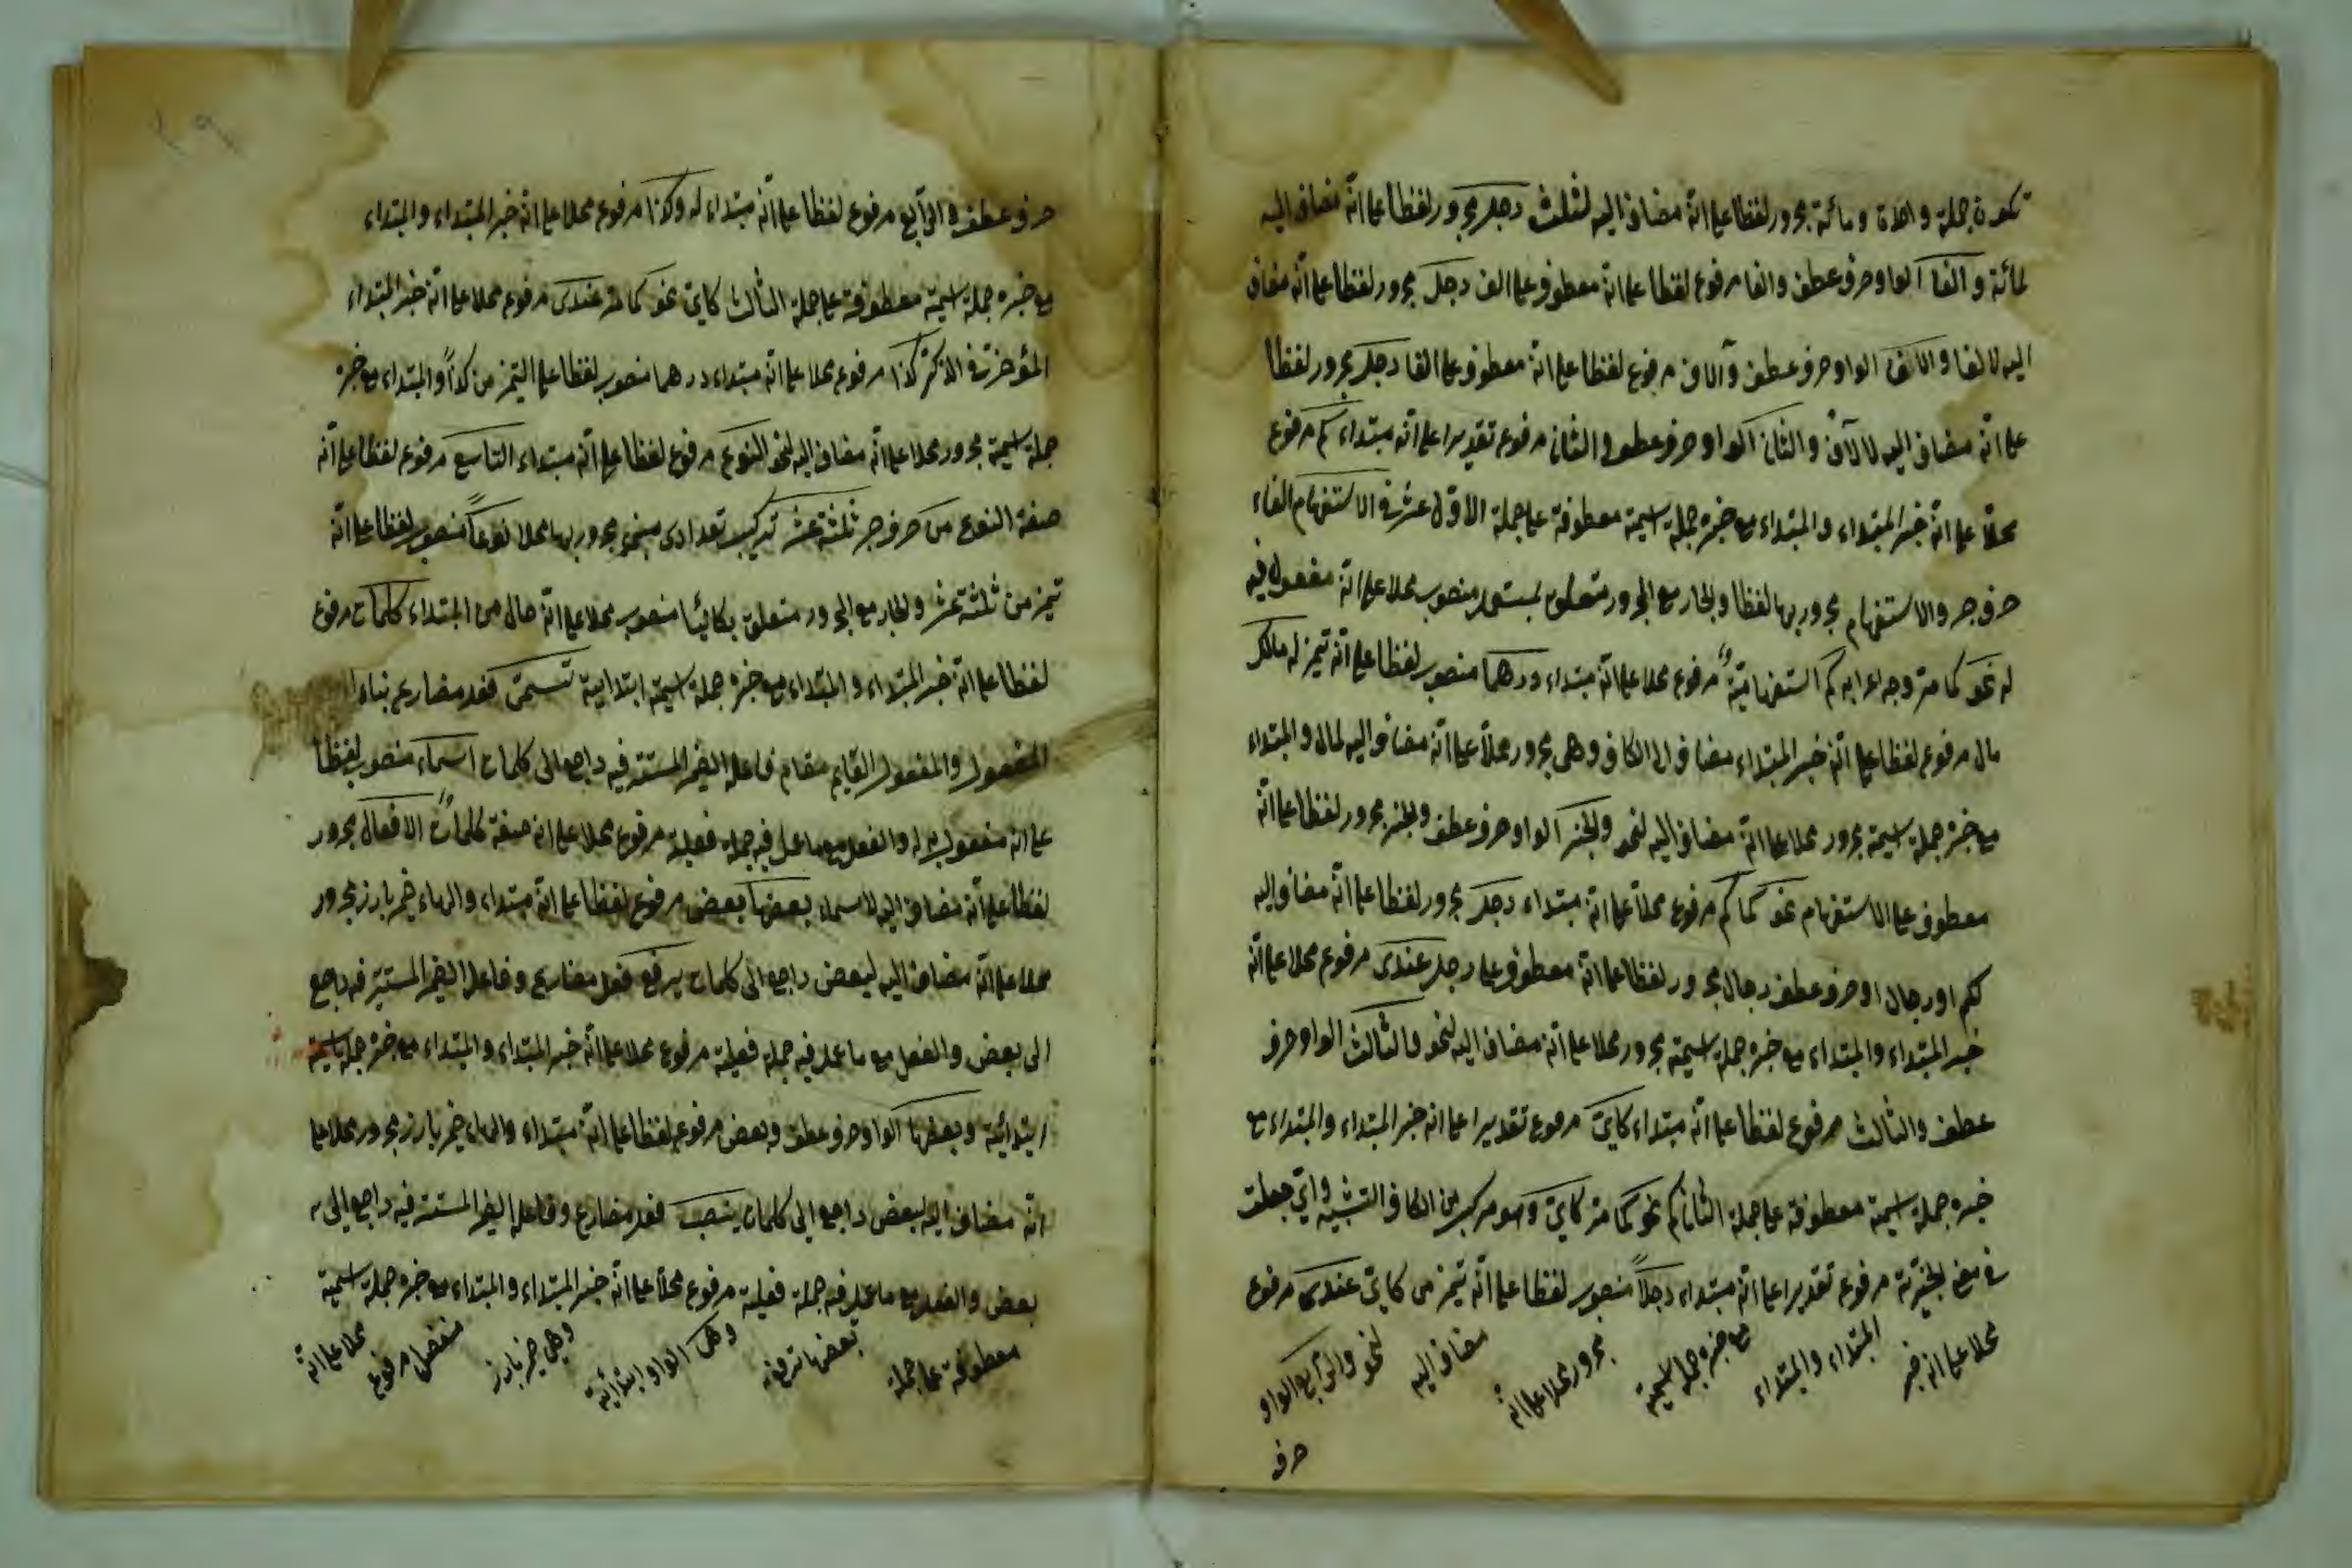 تكون جملة واحدة ومائة مجرور لفظا على انه مضاف اليه لثلث رجل مجرور لفظا على انه مضاف اليه
لمائة والفا الواو حرف عطف والفا مرفوع لفظا على انه معطوف على الف رجل مجرور لفظا على انه مضاف
اليه لالفا والآلاف الواو حرف عطف وآلاف مرفوع لفظا على انه معطوف على الفا رجل مجرور لفظا
على انه مضاف اليه لالآف والثانى الواو حرف عطف والثانى مرفوع تقديرا على انه مبتداء كم مرفوع
محلا على انه خبر المبتداء والمبتداء مع خبره جملة اسمية معطوفة على جملة الاول عشر فى الاستفهام الفاء
حرف جر والاستفهام مجرور بها لفظا والجار مع المجرور متعلق بمستعمل منصوب محلا على انه مفعول فيه
له نحو كما مر وجه اعرابه كم استفهامية مرفوع محلا على انه مبتداء درهما منصوب لفظا على انه تميز له مالك
مال مرفوع لفظا على انه خبر المبتداء مضاف الى الكاف وهى مجرور محلا على انه مضاف اليه لمال والمبتداء
مع خبره جملة اسمية مجرور محلا على انه مضاف اليه لنحو والخبر الواو حرف عطف والخبر مجرور لفظا على انه
معطوف على الاستفهام نحو كما كم مرفوع محلا على انه مبتداء رجل مجرور لفظا على انه مضاف اليه
لكم او رجال او حرف عطف رجال مجرور لفظا على انه معطوف على رجل عندى مرفوع محلا على انه
خبر المبتداء والمبتداء مع خبره جملة اسمية مجرور محلا على انه مضاف اليه لنحو والثالث الواو حرف
عطف والثالث مرفوع لفظا على انه مبتداء كاين مرفوع تقديرا على انه خبر المبتداء والمبتداء مع
خبره جملة اسمية معطوفة على جملة الثانى كم نحو كما مر كاين وهو مركب من الكاف التشبيه واي جعلت
فى معنى الخبرية مرفوع تقديرا على انه مبتداء رجلا منصوب لفظا على انه تميز من كاين عندى مرفوع
محلا على انه خبر المبتداء والمبتداء مع خبره جملة اسمية مجرور محلا على انه مضاف اليه لنحو والرابع الواو
حرف
حرف عطف والرابع مرفوع لفظا على انه مبتداء له وكذا مرفوع محلا على انه خبر المبتداء والمبتداء
مع خبره جملة اسمية معطوفة على جملة الثالث كاين نحو كما مر عندى مرفوع محلا على انه خبر المبتداء
المؤخرة فى الذكر كذا مرفوع محلا على انه مبتداء درهما منصوب لفظا على التميز من كذا والمبتداء مع خبره
جملة اسمية مجرور محلا على انه مضاف اليه لنحو النوع مرفوع لفظا على انه مبتداء التاسع مرفوع لفظا على انه
صفة النوع من حرف جر ثلثة عشر تركيب تعدادى مبنى مجرور بها محلا نوعا منصوب لفظا على انه
تميز من ثلثة عشر والجار مع المجرور متعلق بكائنا منصوب محلا على انه حال من المبتداء كلمات مرفوع
لفظا على انه خبر المبتداء والمبتداء مع خبره جملة اسمية ابتدائية تسمى فعل مضارع بناء
المفعول والمفعول القايم مقام فاعله الضمير المستتر فيه راجع الى كلمات اسماء منصوب لفظا
على انه مفعول به له والفعل مع ما عمل فيه جملة فعلية مرفوع محلا على انه صفة كلمات الافعال مجرور
لفظا على انه مضاف اليه لاسماء بعضها بعض مرفوع لفظا على انه مبتداء والهاء ضمير بارز مجرور
محلا على انه مضاف اليه لبعض راجع الى كلمات يرفع فعل مضارع وفاعله الضمير المستتر فيه راجع
الى بعض والفعل مع ما عمل فيه جملة فعلية مرفوع محلا على انه خبر المبتداء والمبتداء مع خبره جملة اسمية
ابتدائية وبعضها الواو حرف عطف وبعض مرفوع لفظا على انه مبتداء والهاء ضمير بارز مجرور محلا على
انه مضاف اليه لبعض راجع الى كلمات ينصب فعل مضارع وفاعله الضمير المستتر فيه راجع الى
بعض والفعل مع ما عمل فيه جملة فعلية مرفوع محلا على انه خبر المبتداء والمبتداء مع خبره جملة اسمية
معطوفة على جملة بعضها ترفع وهى الواو ابتدائية وهى ضمير بارز منفصل مرفوع محلا على انه